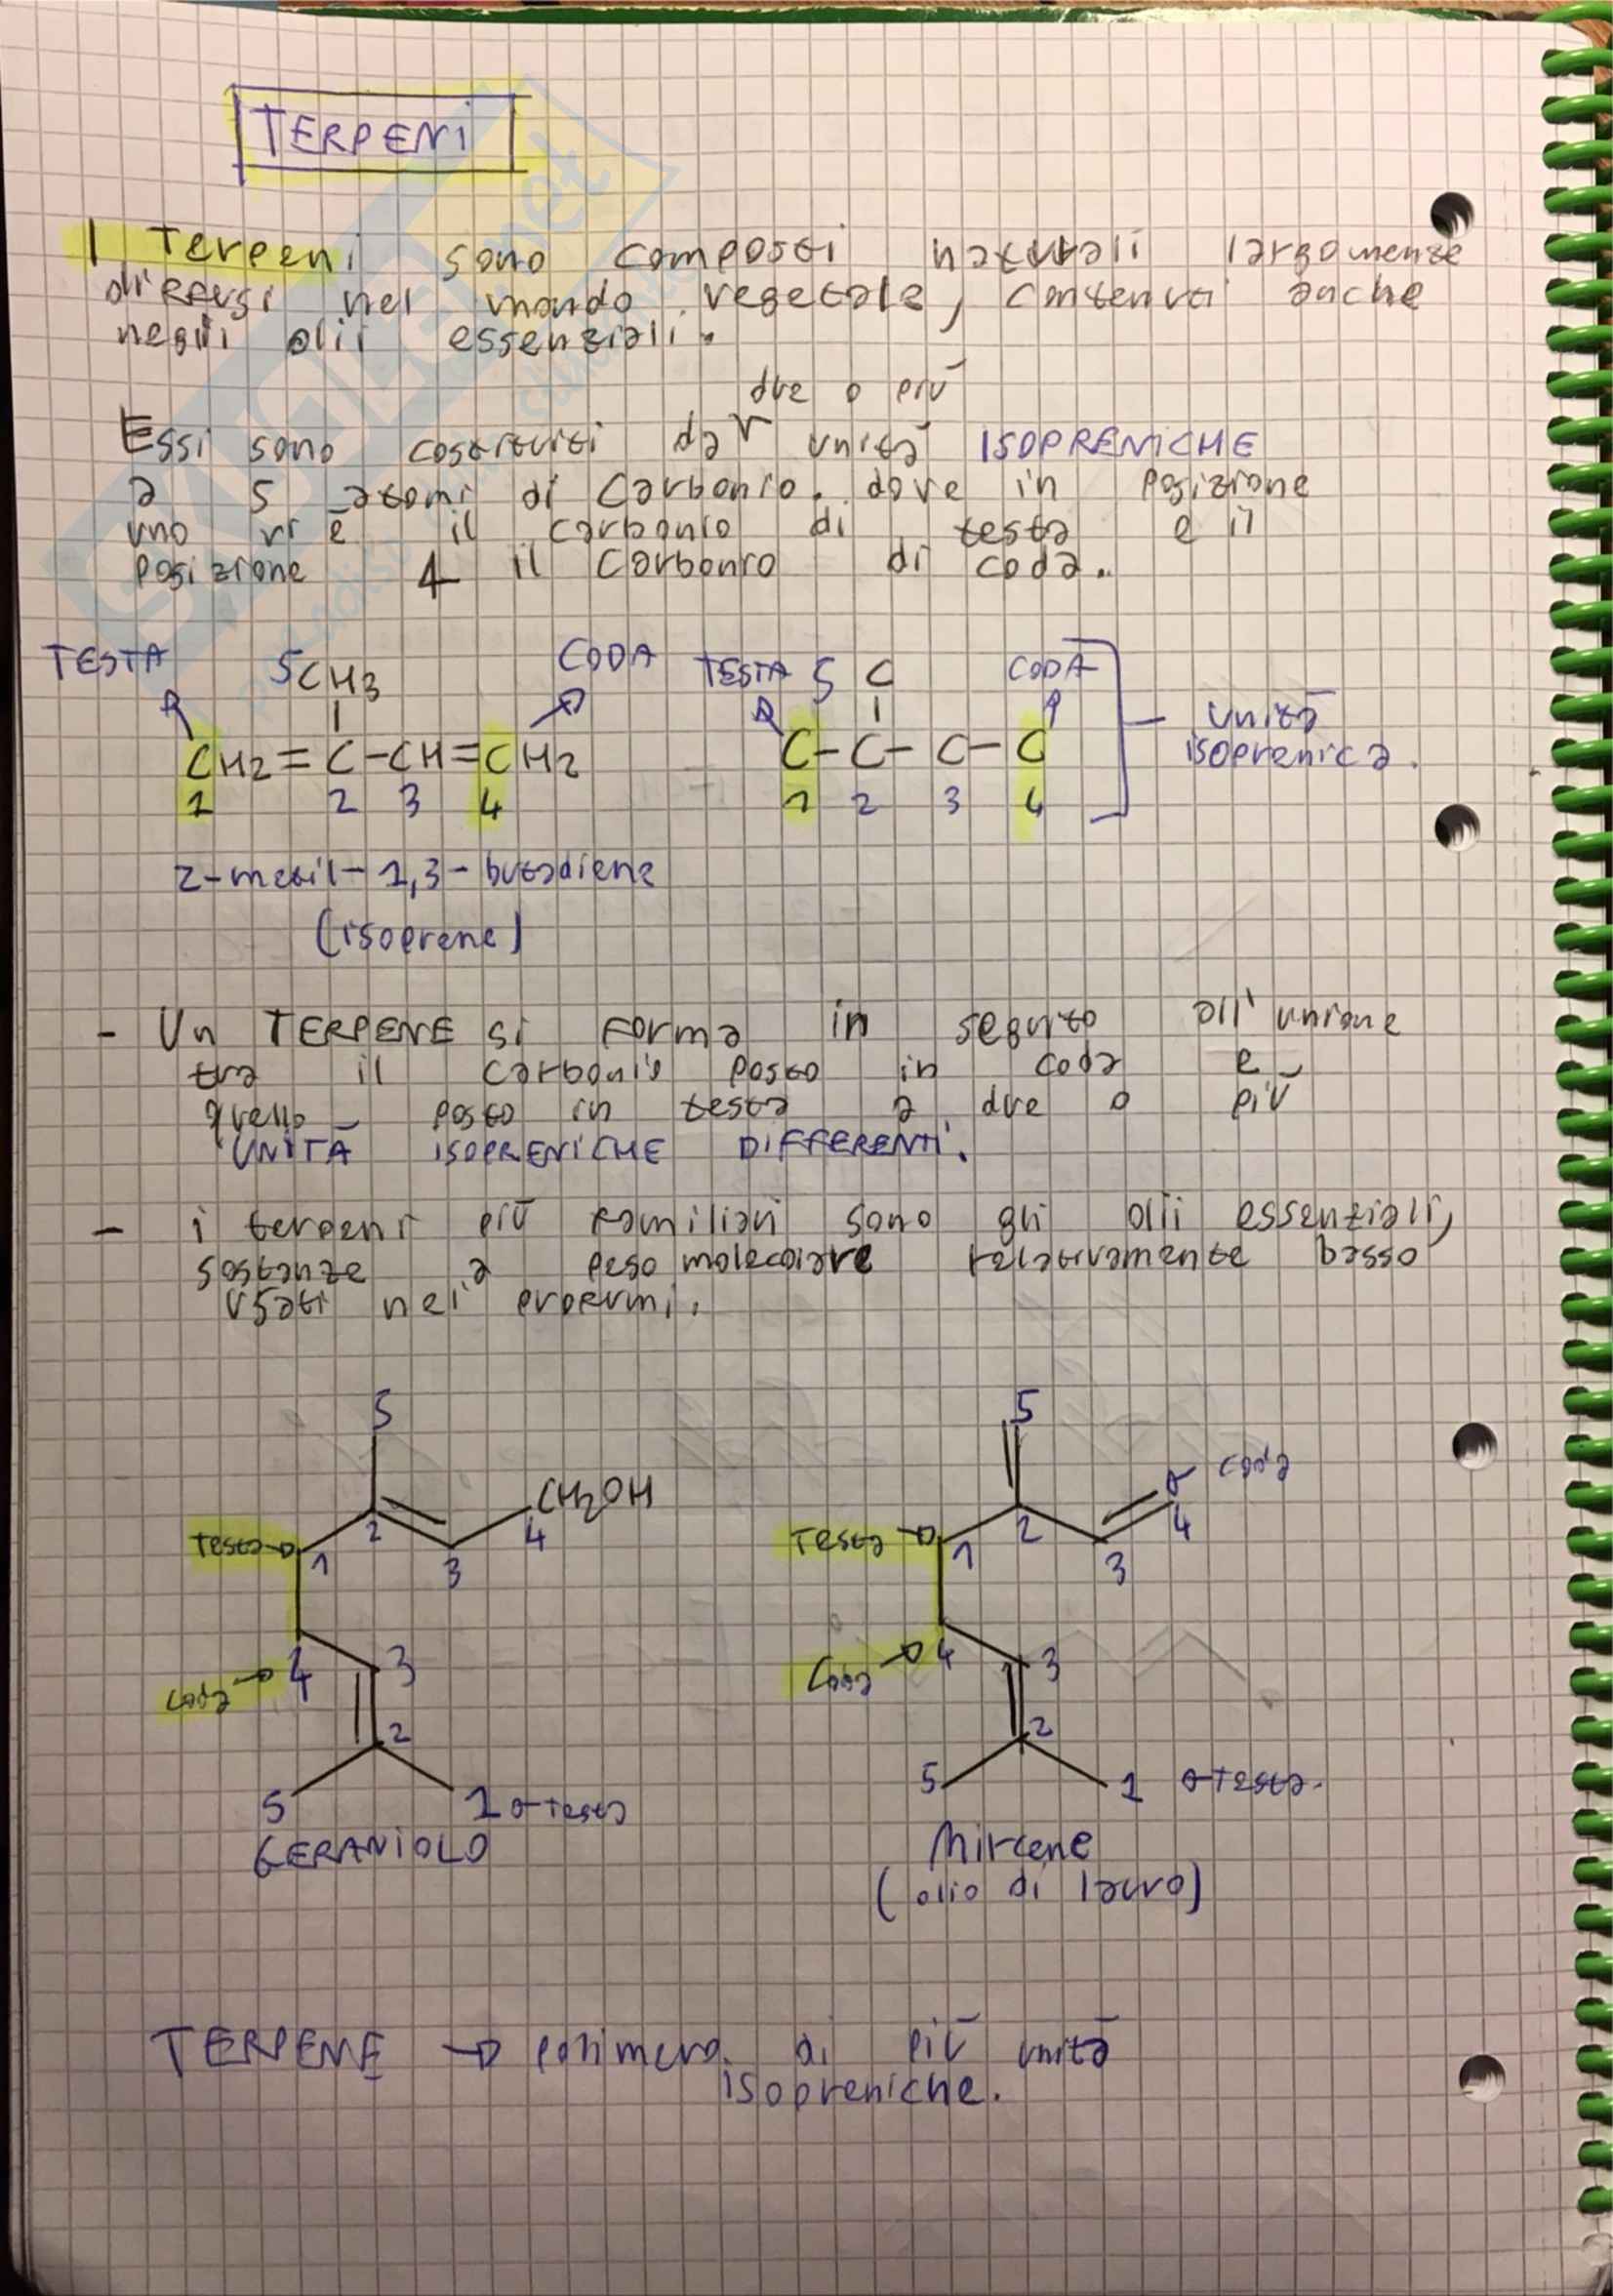 TERPENI
I Terpeni sono composti naturali largamente
diffusi nel mondo vegetale, contenuti anche
negli olii essenziali.
due o più
Essi sono costituiti da unità ISOPRENICHE
a 5 atomi di Carbonio. dove in posizione
uno vi è il carbonio di testa e in
posizione 4 il Carbonio di coda.
TESTA 5CH3 CODA TESTA 5 C CODA
CH2=C-CH=CH2 C-C-C-C unità
isoprenica.
1 2 3 4 1 2 3 4
2-metil-1,3-butadiene
(isoprene)
- Un TERPENE si forma in seguito all'unione
tra il carbonio posto in coda e
quello posto in testa a due o più
UNITÀ ISOPRENICHE DIFFERENTI.
- i terpeni più familiari sono gli olii essenziali,
sostanze a peso molecolare relativamente basso
usati nei profumi.
5 5
CH2OH coda
Testa 1 2 3 4 Testa 1 2 3 4
Coda 4 3 Coda 4 3
2 2
5 1 Testa 5 1 Testa.
GERANIOLO Mircene
(olio di lauro)
TERPENE → polimero di più unità
isopreniche.